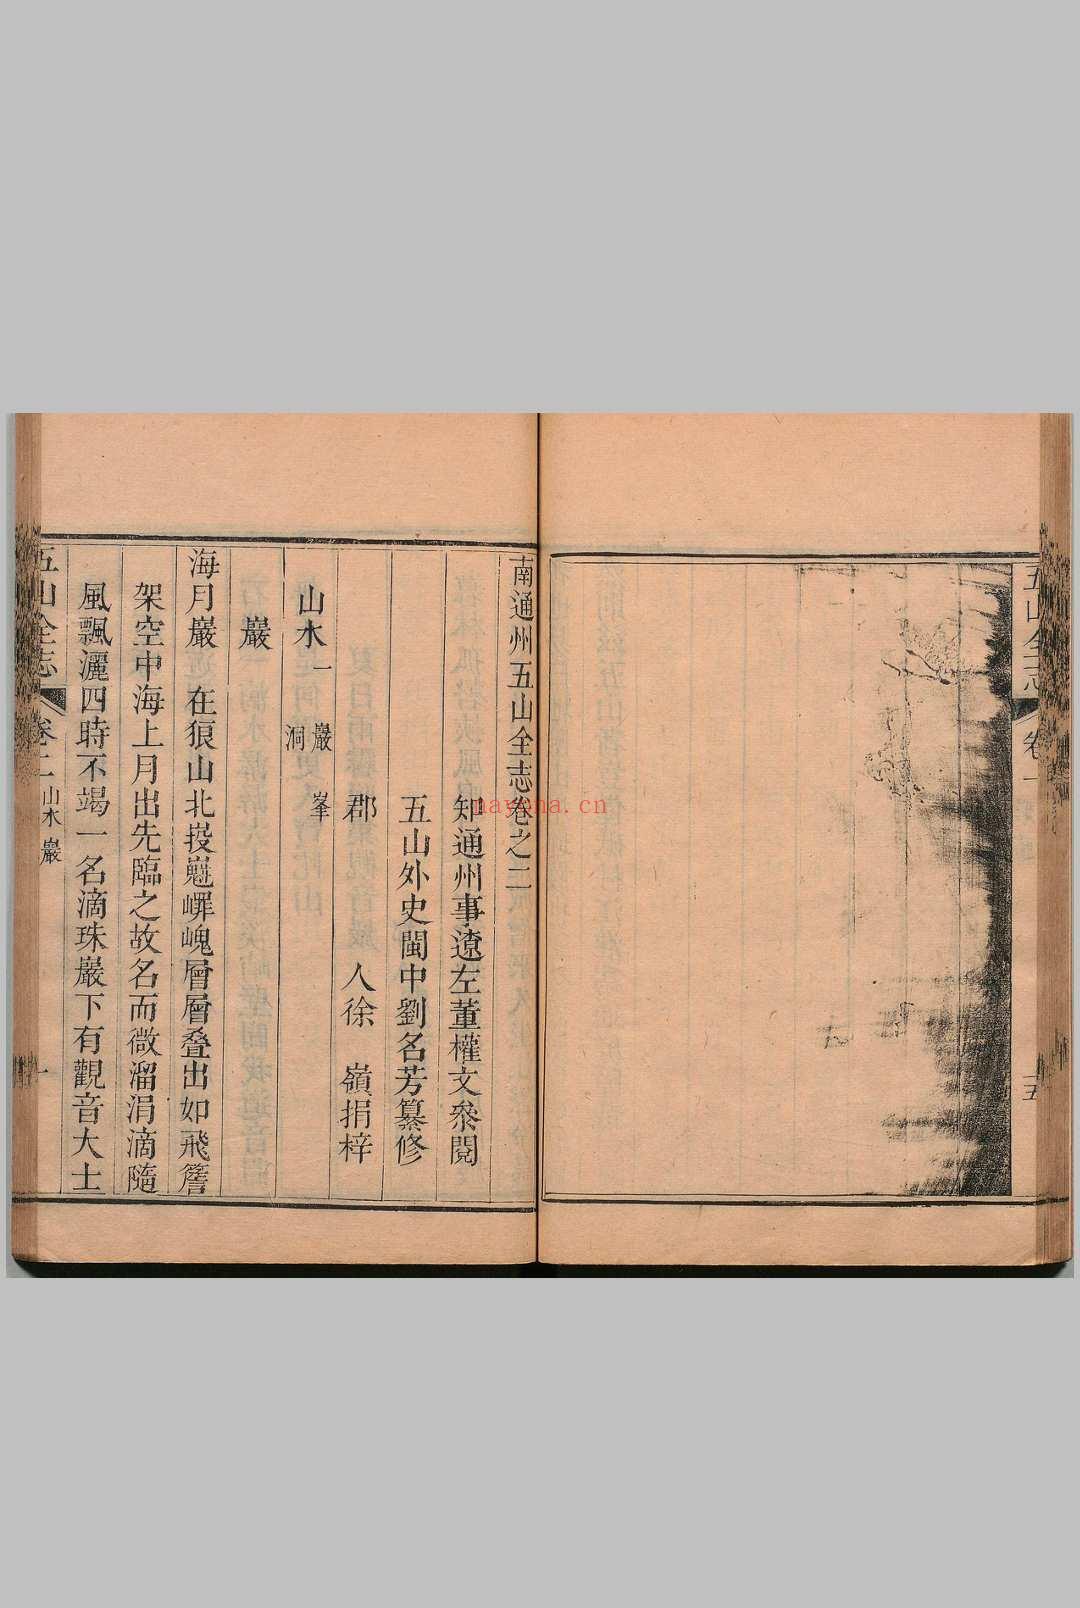 五山全志
卷一
十五
南通州五山全志卷之二
知通州事遼左董權文叅閱
五山外史閩中劉名芳纂修
郡 人徐 嶺捐梓
山水一 巖 峯
洞
巖
海月巖 在狼山北 層層叠出如飛簷
架空中海上月出先臨之故名而微溜涓滴隨
風飄灑四時不竭一名滴珠巖下有觀音大士
五山全志
卷二 山水 巖
一
nayona.cn